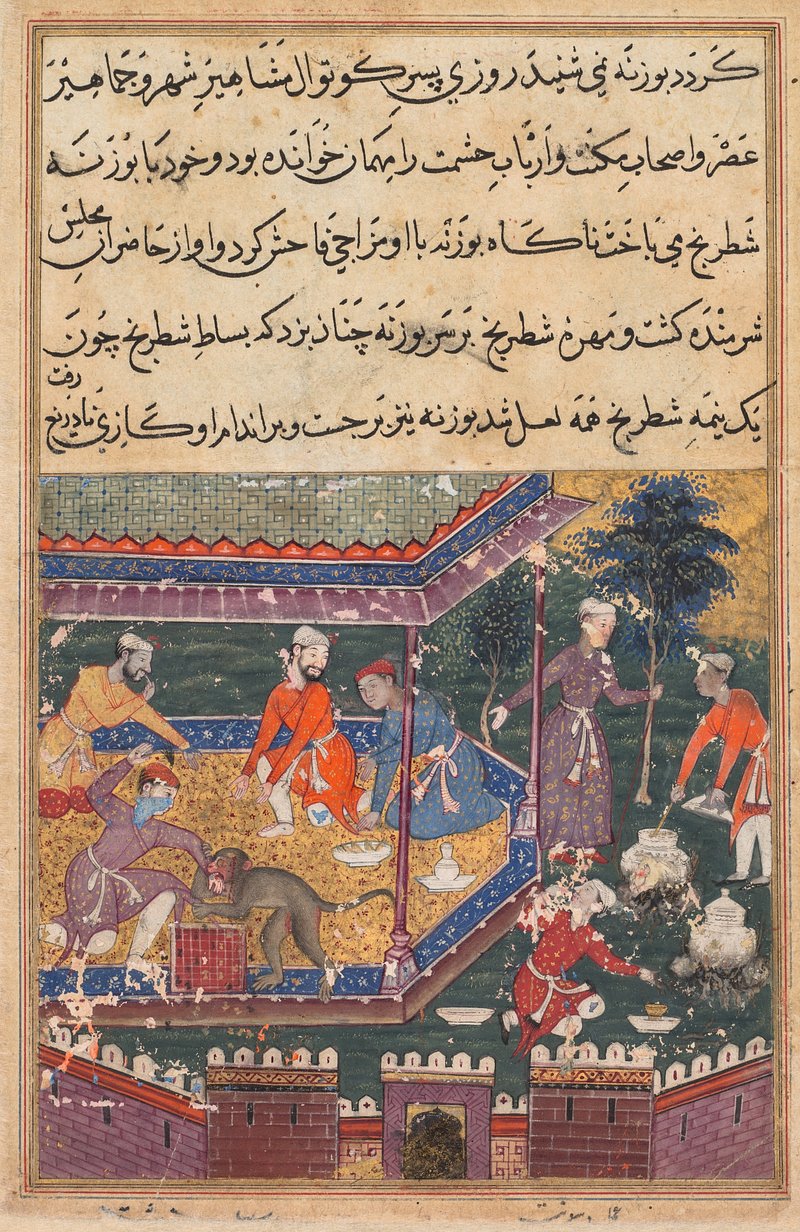 کردد بوزنه نمی شنید روزی پسر کوتوال مَشَاهِیرِ شهر و جَمَاهِیرَ
عَصْرْ و اصحابِ مکنَت وَ اَرْبَابِ حشمت را مِهمَان خُوَانده بود و خود بَا بُوزَنَه
شَطرنج می بَاخَتْ ناکَاه بوزَنه با او مزَاجی فَاحش کرد و او از حَاضرانِ مجلِسْ
شرمنْدَه کشت و مُهرهٔ شطرنج بَر سَر بوزَنَه چَنَان بزد که بساطِ شطرنج چُونَ
یَک نیمَهِ شطرنج هَمَه لعل شد بوزنه نیز بَر جست و بر اندام او کَازِی
رفت